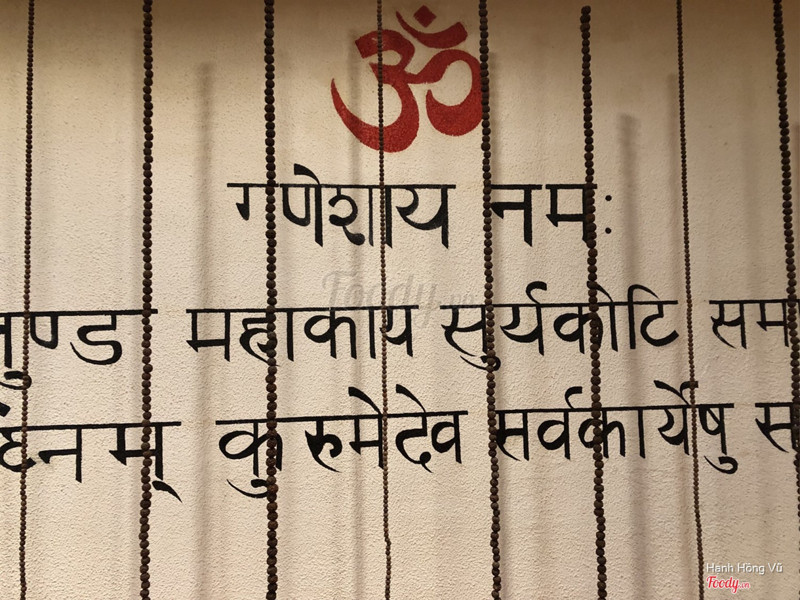 ॐ
गणेशाय नमः
तुण्ड महाकाय सुर्यकोटि सम
कुरुमेदेव सर्वकार्येषु
Foody.vn
Hanh Hồng Vũ
Foody.vn